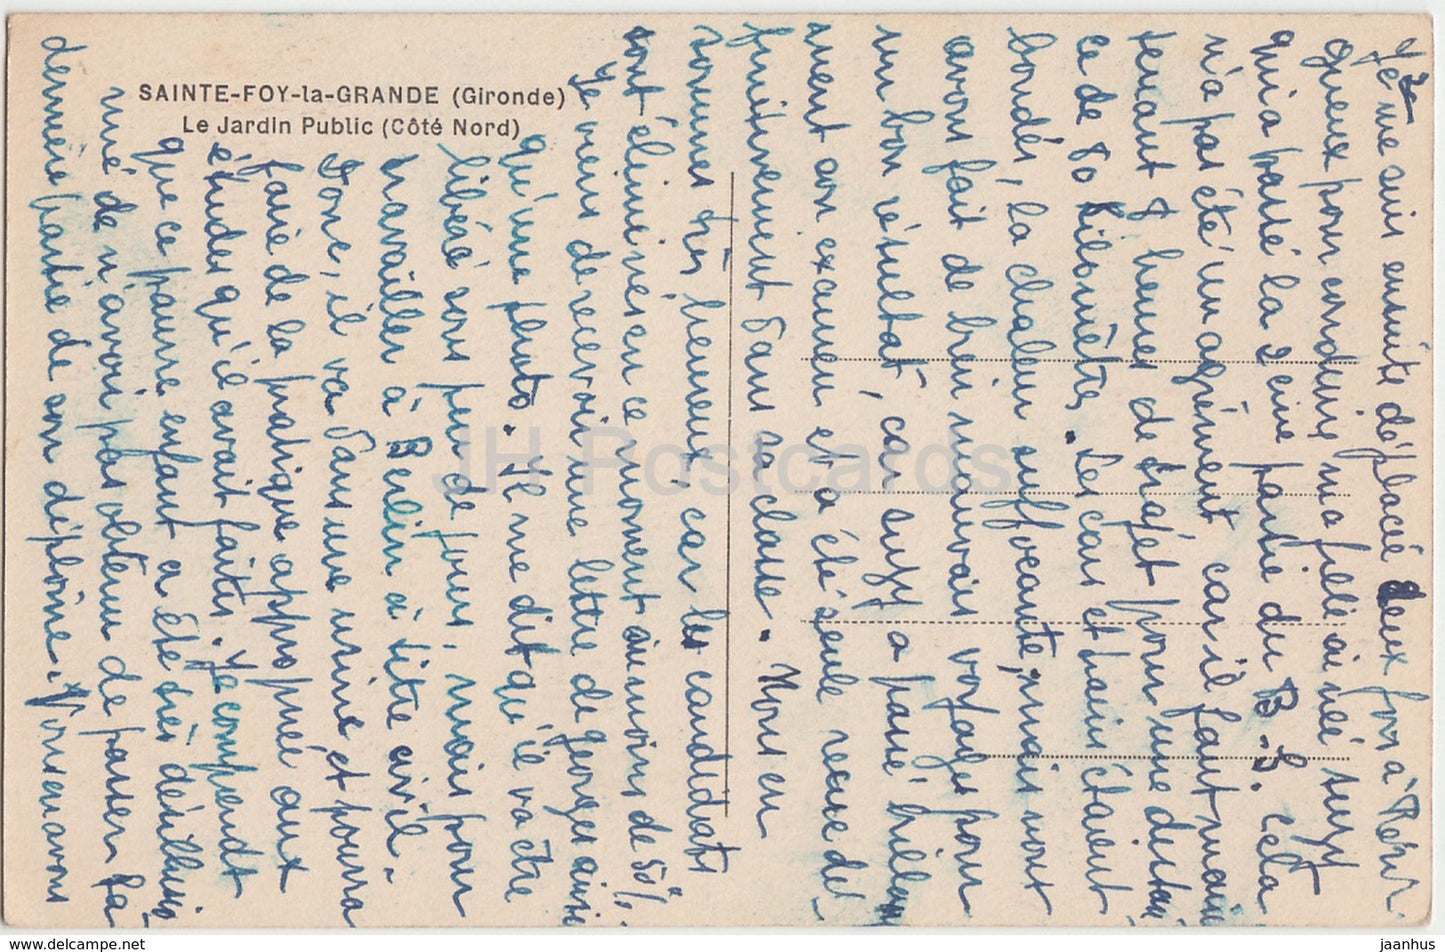 SAINTE-FOY-la-GRANDE (Gironde)
Le Jardin Public (Côté Nord)
Je me suis ensuite déplacée deux fois à
gueux pour conduire ma fille aînée Suzy
qui a passé la 2eme partie du B. S. cela
n'a pas été un agrément car il faut main
tenant 8 heures de trajet pour une distan
ce de 80 kilomètres. Les cars et trains étaient
bondés, la chaleur suffocante, mais nous
avons fait de bien mauvais voyages pour
un bon résultat, car Suzy a passé brillam
ment son examen et a été seule reçue dé-
finitivement dans sa classe. Nous en
sommes très heureux, car les candidats
sont éliminés en ce moment au moins de 50%.
Je viens de recevoir une lettre de Georges ainsi
qu'une photo. Il me dit qu'il va être
libéré sous peu de jours, mais pour
travailler à Berlin à titre civil.
Donc, il va dans une usine et pourra
faire de la pratique appropriée aux
études qu'il avait faites. Je comprends
que ce pauvre enfant a été très désillusion
né de n'avoir pas obtenu de passer la
dernière partie de son diplôme. Nous avons
JH Postcards
hip-hop.delcampe.net
jaanhus